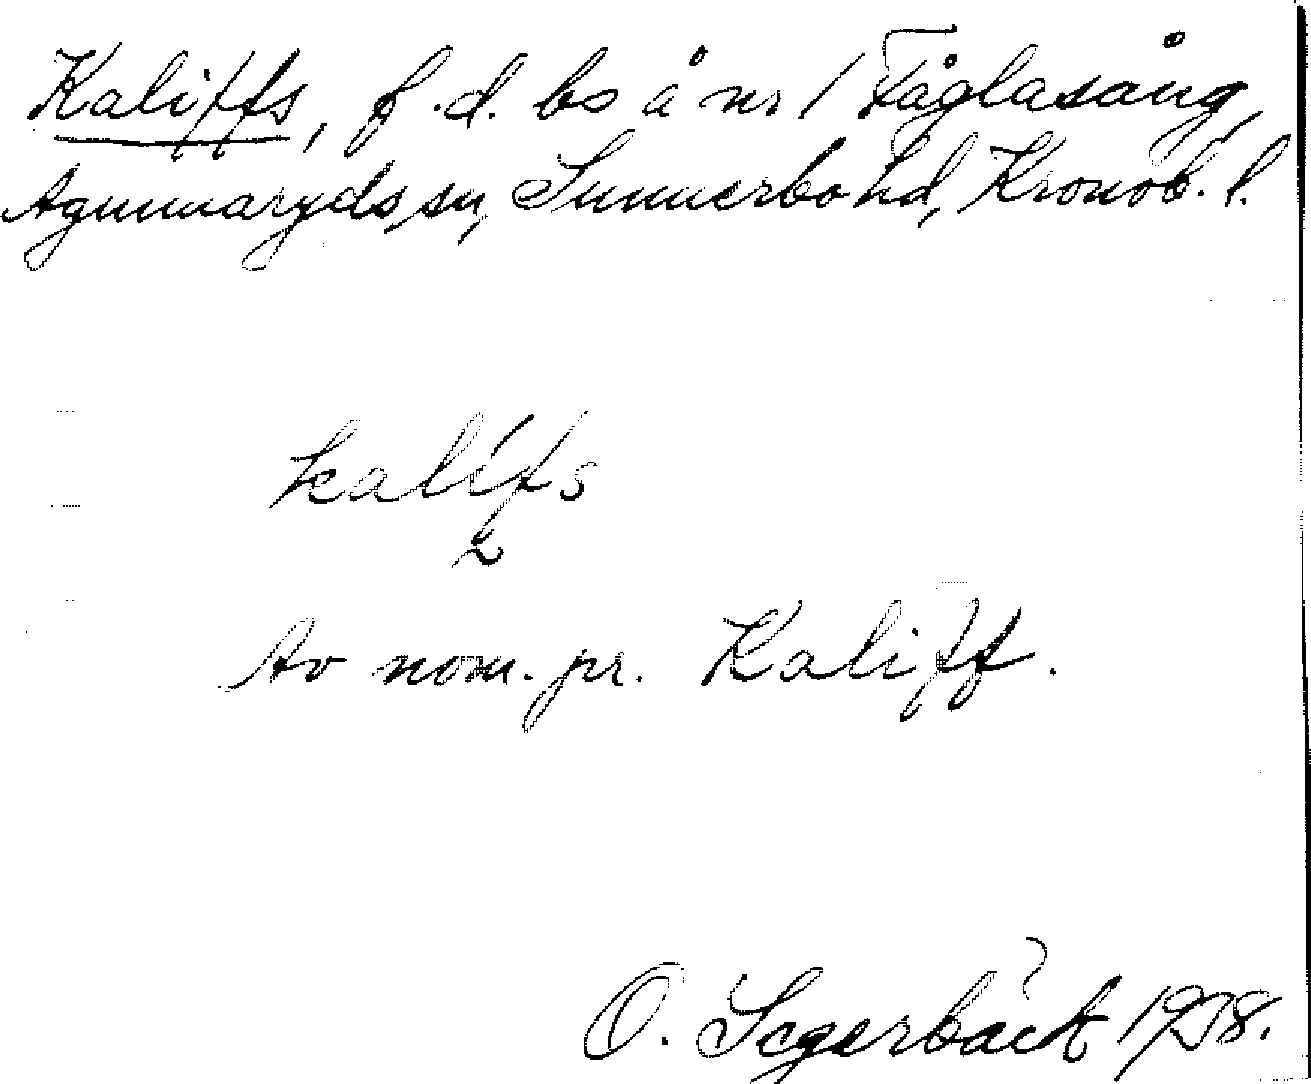 Kaliffs, f.d. bs å nr 1 Fåglasång,
Agunnaryds sn, Sunnerbo hd, Kronob. l.
kalifs
2
Av nom. pr. Kaliff.
O. Segerbäck 1938.